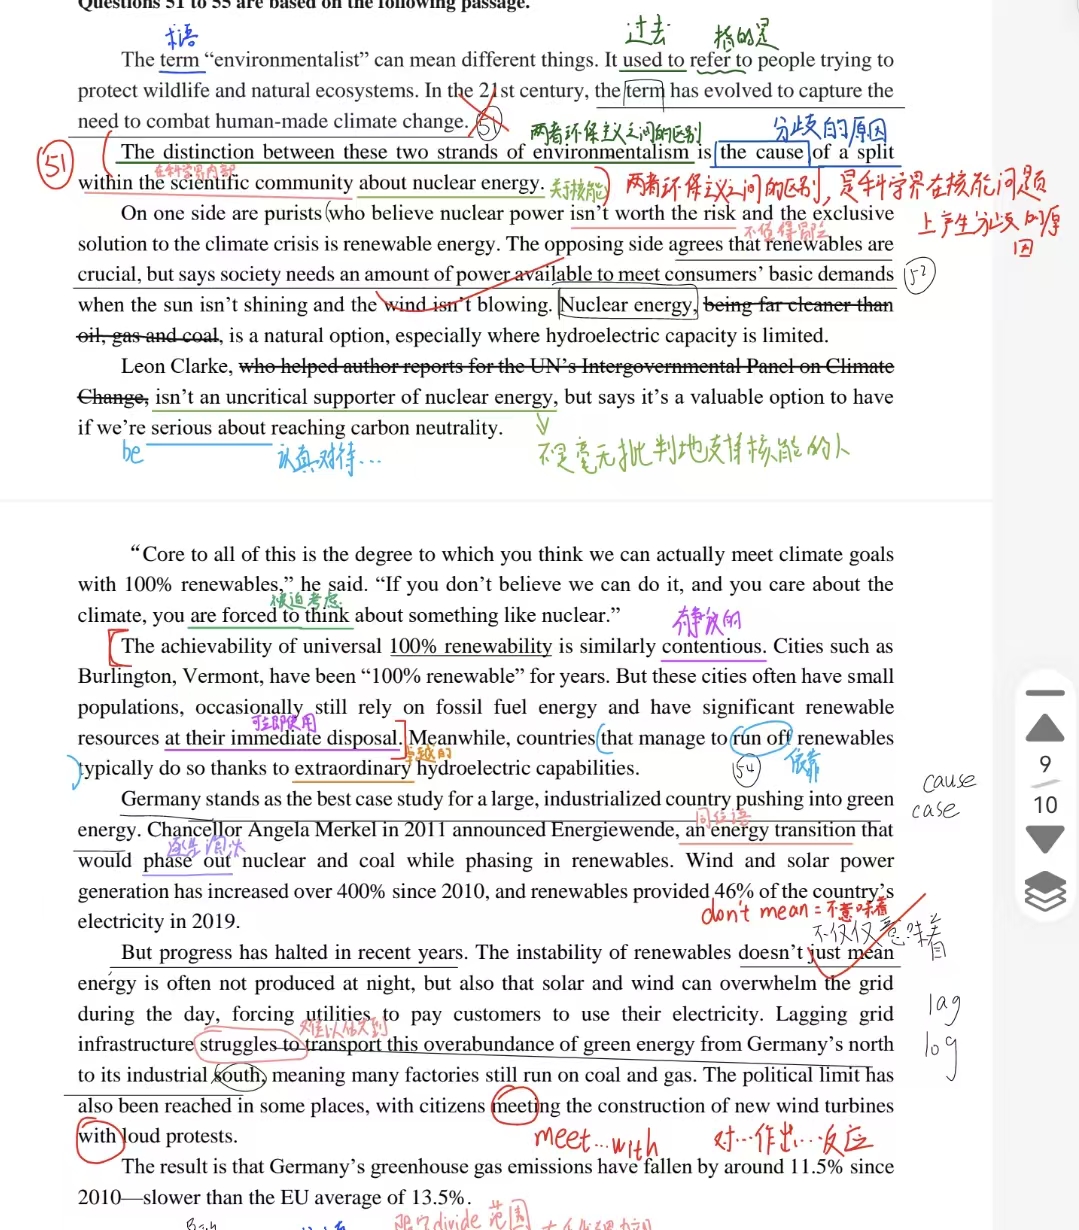 Questions 51 to 55 are based on the following passage.
术语
过去
指的是
The term “environmentalist” can mean different things. It used to refer to people trying to
protect wildlife and natural ecosystems. In the 21st century, the term has evolved to capture the
need to combat human-made climate change. 51
两者环保主义之间的区别
分歧的原因
51
The distinction between these two strands of environmentalism is the cause of a split
在科学界内部
within the scientific community about nuclear energy. 关于核能
两者环保主义之间的区别，是科学界在核能问题
上产生分歧的原
因
On one side are purists who believe nuclear power isn’t worth the risk and the exclusive
不值得冒险
solution to the climate crisis is renewable energy. The opposing side agrees that renewables are
crucial, but says society needs an amount of power available to meet consumers’ basic demands 52
when the sun isn’t shining and the wind isn’t blowing. Nuclear energy, being far cleaner than
oil, gas and coal, is a natural option, especially where hydroelectric capacity is limited.
Leon Clarke, who helped author reports for the UN’s Intergovernmental Panel on Climate
Change, isn’t an uncritical supporter of nuclear energy, but says it’s a valuable option to have
if we’re serious about reaching carbon neutrality.
be
认真对待...
不是毫无批判地支持核能的人
“Core to all of this is the degree to which you think we can actually meet climate goals
with 100% renewables,” he said. “If you don’t believe we can do it, and you care about the
被迫考虑
climate, you are forced to think about something like nuclear.”
有争议的
The achievability of universal 100% renewability is similarly contentious. Cities such as
Burlington, Vermont, have been “100% renewable” for years. But these cities often have small
populations, occasionally still rely on fossil fuel energy and have significant renewable
可立即使用
resources at their immediate disposal. Meanwhile, countries that manage to run off renewables
卓越的
typically do so thanks to extraordinary hydroelectric capabilities. 54
依靠
cause
case
9
10
Germany stands as the best case study for a large, industrialized country pushing into green
同位语
energy. Chancellor Angela Merkel in 2011 announced Energiewende, an energy transition that
逐步淘汰
would phase out nuclear and coal while phasing in renewables. Wind and solar power
generation has increased over 400% since 2010, and renewables provided 46% of the country’s
electricity in 2019.
don't mean = 不意味着
不仅仅意味着
But progress has halted in recent years. The instability of renewables doesn’t just mean
energy is often not produced at night, but also that solar and wind can overwhelm the grid
during the day, forcing utilities to pay customers to use their electricity. Lagging grid
lag
log
infrastructure struggles to transport this overabundance of green energy from Germany’s north
to its industrial south, meaning many factories still run on coal and gas. The political limit has
also been reached in some places, with citizens meeting the construction of new wind turbines
with loud protests.
meet...with
对...作出...反应
The result is that Germany’s greenhouse gas emissions have fallen by around 11.5% since
2010—slower than the EU average of 13.5%.
divide 范围